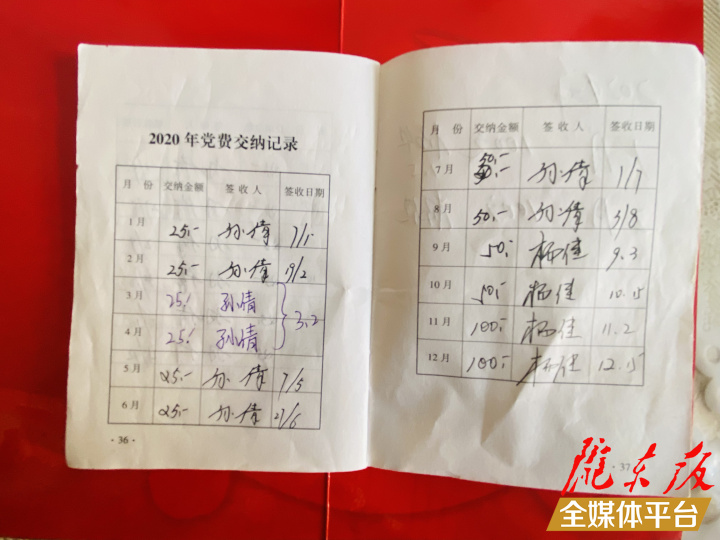 2020年党费交纳记录
月 份 交纳金额 签收人 签收日期
1月 25.- 孙倩 7/1
2月 25.- 孙倩 19/2
3月 25.- 孙倩
3.2
4月 25.- 孙倩
5月 25.- 孙倩 7/5
6月 25.- 孙倩 23/6
·36·
月 份 交纳金额 签收人 签收日期
7月 50.- 孙倩 1/7
8月 50.- 孙倩 3/8
9月 50.- 杨佳 9.3
10月 50.- 杨佳 10.15
11月 100.- 杨佳 11.2
12月 100.- 杨佳 12.15
37
陇东报
全媒体平台